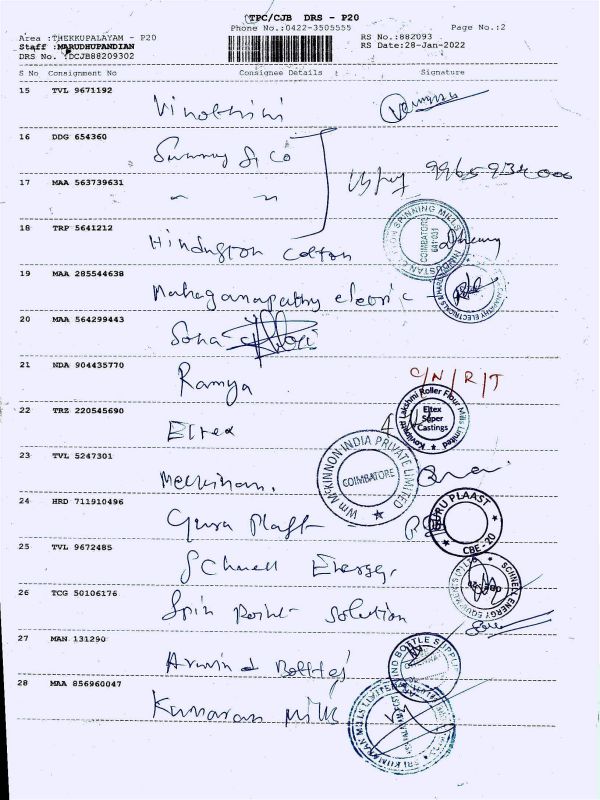 TPC/CJB DRS - P20
Phone No.:0422-3505555
Page No.:2
Area :THEKKUPALAYAM - P20
RS No.:88Z093
Staff :MARUDHUPANDIAN
RS Date:28-Jan-2022
DRS No. :DCJB88209302
S No Consignment No Consignee Details Signature
15 TVL 9671192
Vinothini
16 DDG 654360
& Co
17 MAA 563739631
" "
18 TRP 5641212
Hindustan Cotton
COIMBATORE
641 031
19 MAA 285544638
Mahaganapathy electric
20 MAA 564299443
Sona
21 NDA 904435770
Ramya
C/N/R/T
22 TRZ 220545690
Eltex
Kovilpatti Lakshmi Roller Flour Mills Limited
Eltex Super Castings
23 TVL 5247301
Mckinnon.
Wm MCKINNON INDIA PRIVATE LIMITED
COIMBATORE
24 HRD 711910496
Guru Plast
GURU PLAAST
CBE - 20
25 TVL 9672485
Schnell Energy,
SCHNELL ENERGY EQUIPMENTS (P) LTD
26 TCG 50106176
Spin Point Solution
27 MAN 131290
Arwind Bottles
28 MAA 856960047
Kumaran Mills